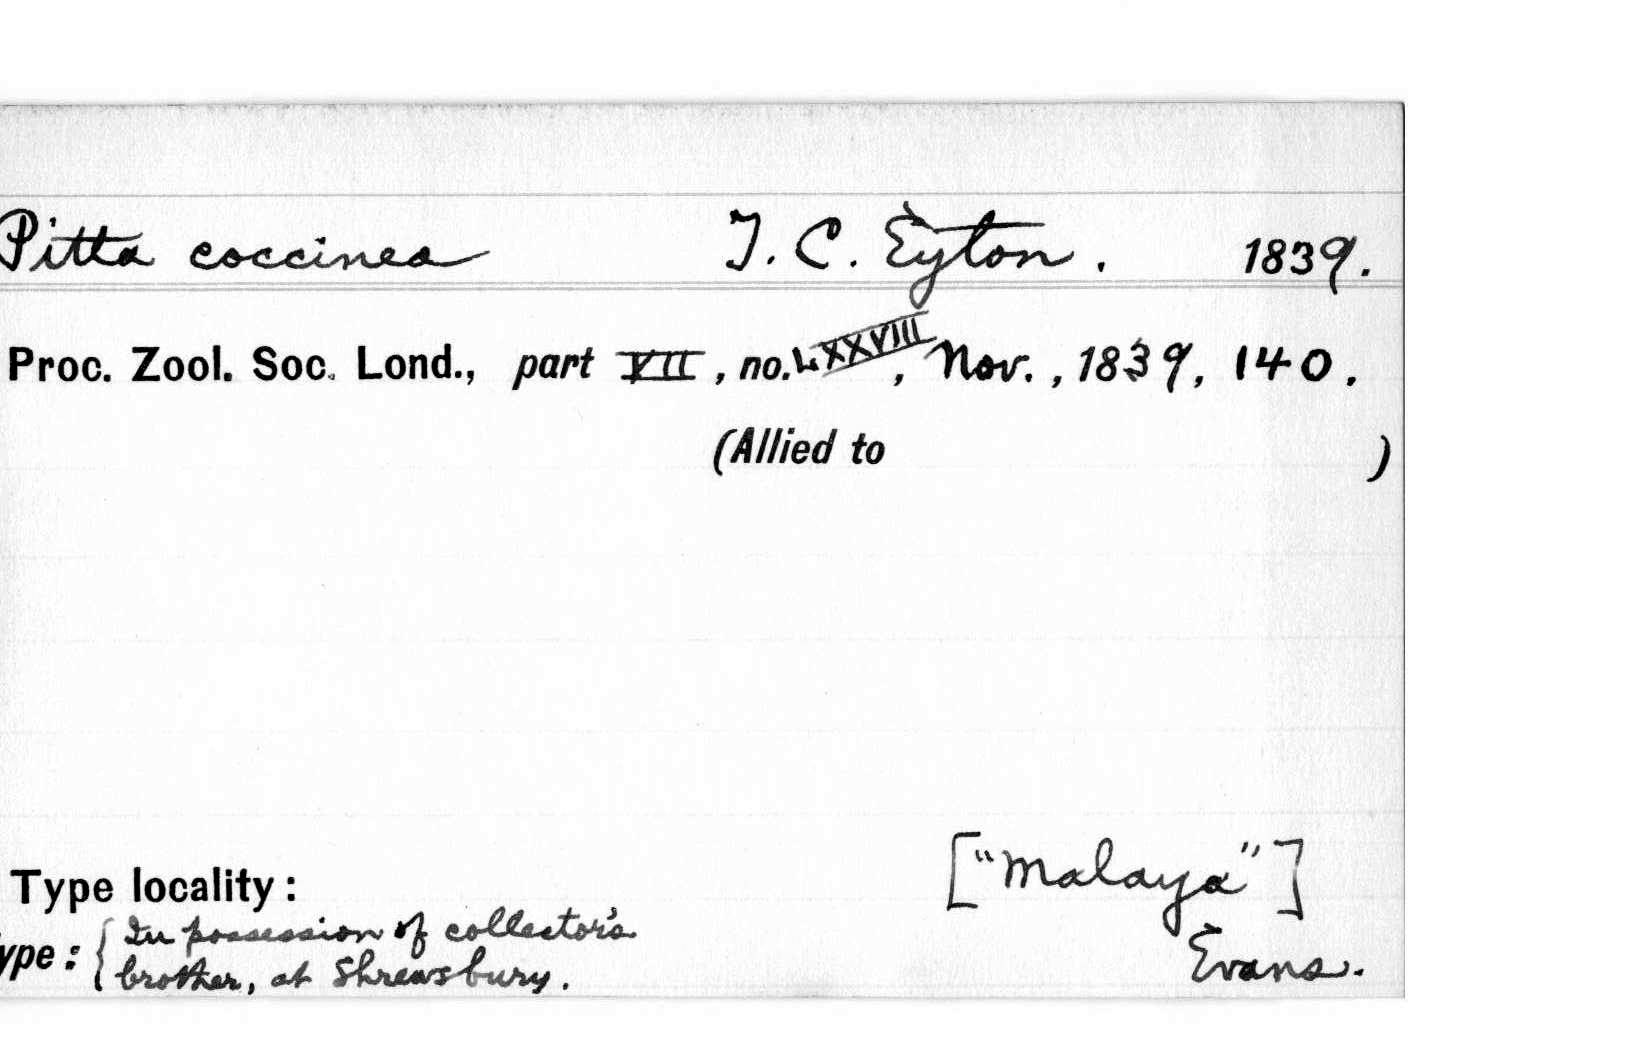 Pitta coccinea T. C. Eyton. 1839.
Proc. Zool. Soc. Lond., part VII, no. LXXVIII, Nov., 1839, 140.
(Allied to )
Type locality: ["Malaya"]
ype: { In possession of collector's
brother, at Shrewsbury. Evans.